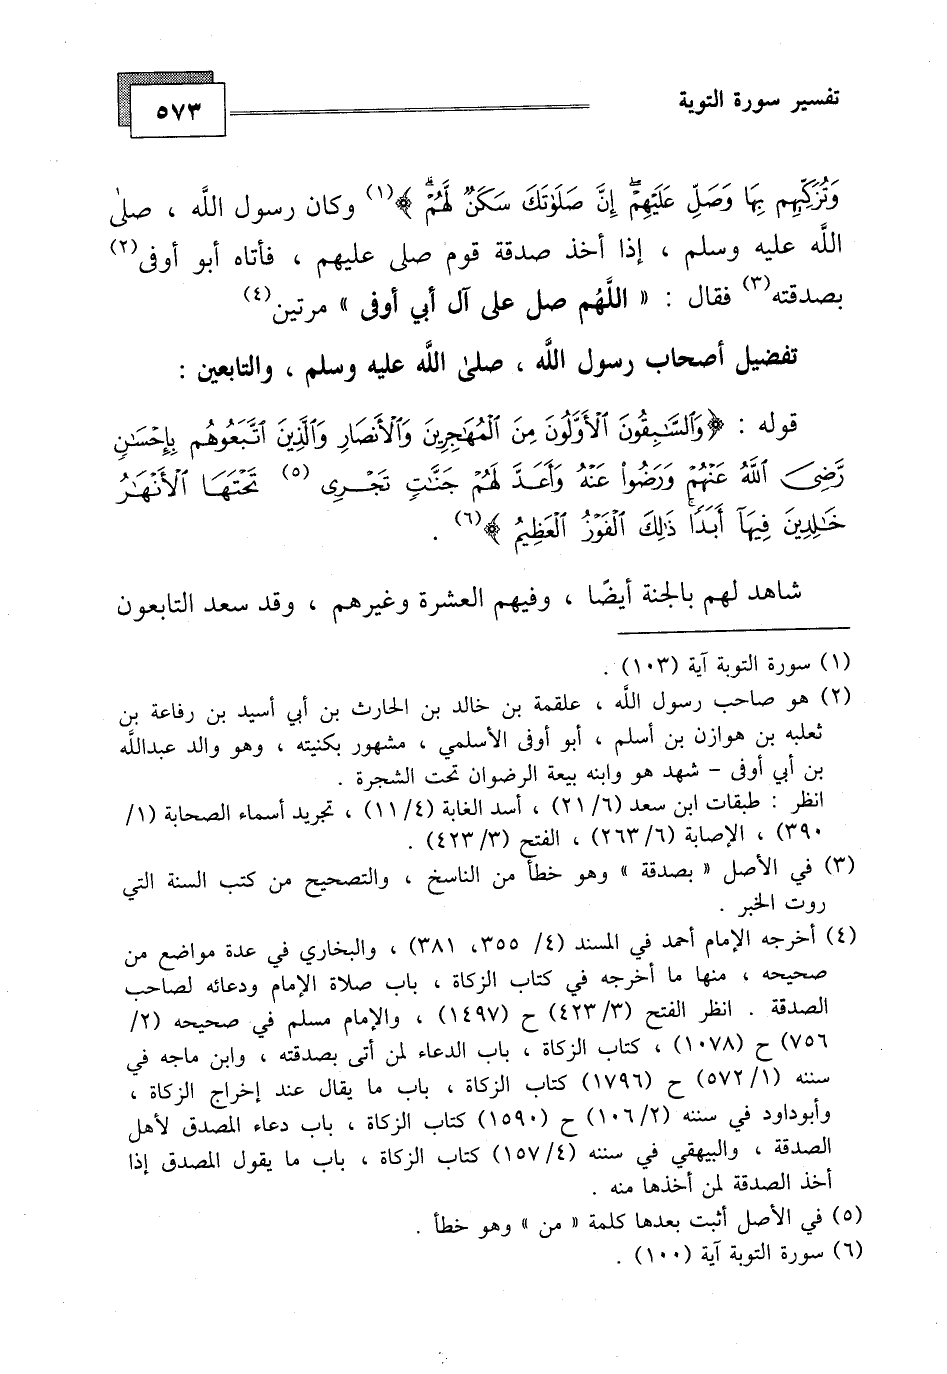 تفسير سورة التوبة
٥٧٣
وَتُزَكِّيهِم بِهَا وَصَلِّ عَلَيْهِمْ إِنَّ صَلَوٰتَكَ سَكَنٌ لَّهُمْ ﴾(١) وكان رسول اللَّه ، صلى
اللَّه عليه وسلم ، إذا أخذ صدقة قوم صلى عليهم ، فأتاه أبو أوفى(٢)
بصدقته(٣) فقال : « اللَّهُم صل على آل أبي أوفى » مرتين(٤)
تفضيل أصحاب رسول اللَّه ، صلىٰ اللَّه عليه وسلم ، والتابعين :
قوله : ﴿ وَٱلسَّٰبِقُونَ ٱلْأَوَّلُونَ مِنَ ٱلْمُهَٰجِرِينَ وَٱلْأَنصَارِ وَٱلَّذِينَ ٱتَّبَعُوهُم بِإِحْسَٰنٍ
رَّضِىَ ٱللَّهُ عَنْهُمْ وَرَضُوا۟ عَنْهُ وَأَعَدَّ لَهُمْ جَنَّٰتٍ تَجْرِى (٥) تَحْتَهَا ٱلْأَنْهَٰرُ
خَٰلِدِينَ فِيهَآ أَبَدًا ۚ ذَٰلِكَ ٱلْفَوْزُ ٱلْعَظِيمُ ﴾(٦) .
شاهد لهم بالجنة أيضًا ، وفيهم العشرة وغيرهم ، وقد سعد التابعون
(١) سورة التوبة آية (١٠٣) .
(٢) هو صاحب رسول اللَّه ، علقمة بن خالد بن الحارث بن أبي أسيد بن رفاعة بن
ثعلبه بن هوازن بن أسلم ، أبو أوفى الأسلمي ، مشهور بكنيته ، وهو والد عبداللَّه
بن أبي أوفى - شهد هو وابنه بيعة الرضوان تحت الشجرة .
انظر : طبقات ابن سعد (٢١/٦) ، أسد الغابة (١١/٤) ، تجريد أسماء الصحابة (١/
٣٩٠) ، الإصابة (٢٦٣/٦) ، الفتح (٤٢٣/٣) .
(٣) في الأصل « بصدقة » وهو خطأ من الناسخ ، والتصحيح من كتب السنة التي
روت الخبر .
(٤) أخرجه الإمام أحمد في المسند (٤/ ٣٥٥، ٣٨١) ، والبخاري في عدة مواضع من
صحيحه ، منها ما أخرجه في كتاب الزكاة ، باب صلاة الإمام ودعائه لصاحب
الصدقة . انظر الفتح (٤٢٣/٣) ح (١٤٩٧) ، والإمام مسلم في صحيحه (٢/
٧٥٦) ح (١٠٧٨) ، كتاب الزكاة ، باب الدعاء لمن أتى بصدقته ، وابن ماجه في
سننه (٥٧٢/١) ح (١٧٩٦) كتاب الزكاة ، باب ما يقال عند إخراج الزكاة ،
وأبوداود في سننه (١٠٦/٢) ح (١٥٩٠) كتاب الزكاة ، باب دعاء المصدق لأهل
الصدقة ، والبيهقي في سننه (١٥٧/٤) كتاب الزكاة ، باب ما يقول المصدق إذا
أخذ الصدقة لمن أخذها منه .
(٥) في الأصل أثبت بعدها كلمة « من » وهو خطأ .
(٦) سورة التوبة آية (١٠٠) .